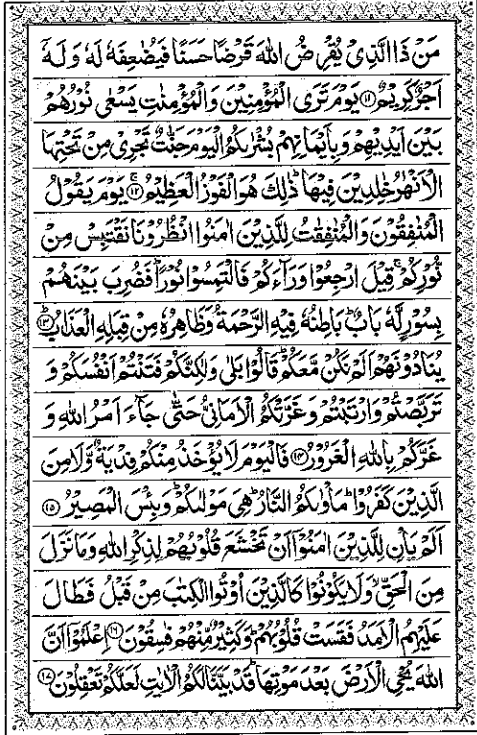 مَنْ ذَا الَّذِیْ یُقْرِضُ اللّٰهَ قَرْضًا حَسَنًا فَیُضٰعِفَهٗ لَهٗ وَ لَهٗۤ
اَجْرٌ كَرِیْمٌ ۝۱۱ یَوْمَ تَرَی الْمُؤْمِنِیْنَ وَ الْمُؤْمِنٰتِ یَسْعٰی نُوْرُهُمْ
بَیْنَ اَیْدِیْهِمْ وَ بِاَیْمَانِهِمْ بُشْرٰىكُمُ الْیَوْمَ جَنّٰتٌ تَجْرِیْ مِنْ تَحْتِهَا
الْاَنْهٰرُ خٰلِدِیْنَ فِیْهَا ؕ ذٰلِكَ هُوَ الْفَوْزُ الْعَظِیْمُ ۝۱۲ یَوْمَ یَقُوْلُ
الْمُنٰفِقُوْنَ وَ الْمُنٰفِقٰتُ لِلَّذِیْنَ اٰمَنُوا انْظُرُوْنَا نَقْتَبِسْ مِنْ
نُّوْرِكُمْ ۚ قِیْلَ ارْجِعُوْا وَرَآءَكُمْ فَالْتَمِسُوْا نُوْرًا ؕ فَضُرِبَ بَیْنَهُمْ
بِسُوْرٍ لَّهٗ بَابٌ ؕ بَاطِنُهٗ فِیْهِ الرَّحْمَةُ وَ ظَاهِرُهٗ مِنْ قِبَلِهِ الْعَذَابُ ۝۱۳
یُنَادُوْنَهُمْ اَلَمْ نَكُنْ مَّعَكُمْ ؕ قَالُوْا بَلٰی وَ لٰكِنَّكُمْ فَتَنْتُمْ اَنْفُسَكُمْ وَ
تَرَبَّصْتُمْ وَ ارْتَبْتُمْ وَ غَرَّتْكُمُ الْاَمَانِیُّ حَتّٰی جَآءَ اَمْرُ اللّٰهِ وَ
غَرَّكُمْ بِاللّٰهِ الْغَرُوْرُ ۝۱۴ فَالْیَوْمَ لَا یُؤْخَذُ مِنْكُمْ فِدْیَةٌ وَّ لَا مِنَ
الَّذِیْنَ كَفَرُوْا ؕ مَاْوٰىكُمُ النَّارُ ؕ هِیَ مَوْلٰىكُمْ ؕ وَ بِئْسَ الْمَصِیْرُ ۝۱۵
اَلَمْ یَاْنِ لِلَّذِیْنَ اٰمَنُوْۤا اَنْ تَخْشَعَ قُلُوْبُهُمْ لِذِكْرِ اللّٰهِ وَ مَا نَزَلَ
مِنَ الْحَقِّ ۙ وَ لَا یَكُوْنُوْا كَالَّذِیْنَ اُوْتُوا الْكِتٰبَ مِنْ قَبْلُ فَطَالَ
عَلَیْهِمُ الْاَمَدُ فَقَسَتْ قُلُوْبُهُمْ ؕ وَ كَثِیْرٌ مِّنْهُمْ فٰسِقُوْنَ ۝۱۶ اِعْلَمُوْۤا اَنَّ
اللّٰهَ یُحْیِ الْاَرْضَ بَعْدَ مَوْتِهَا ؕ قَدْ بَیَّنَّا لَكُمُ الْاٰیٰتِ لَعَلَّكُمْ تَعْقِلُوْنَ ۝۱۷